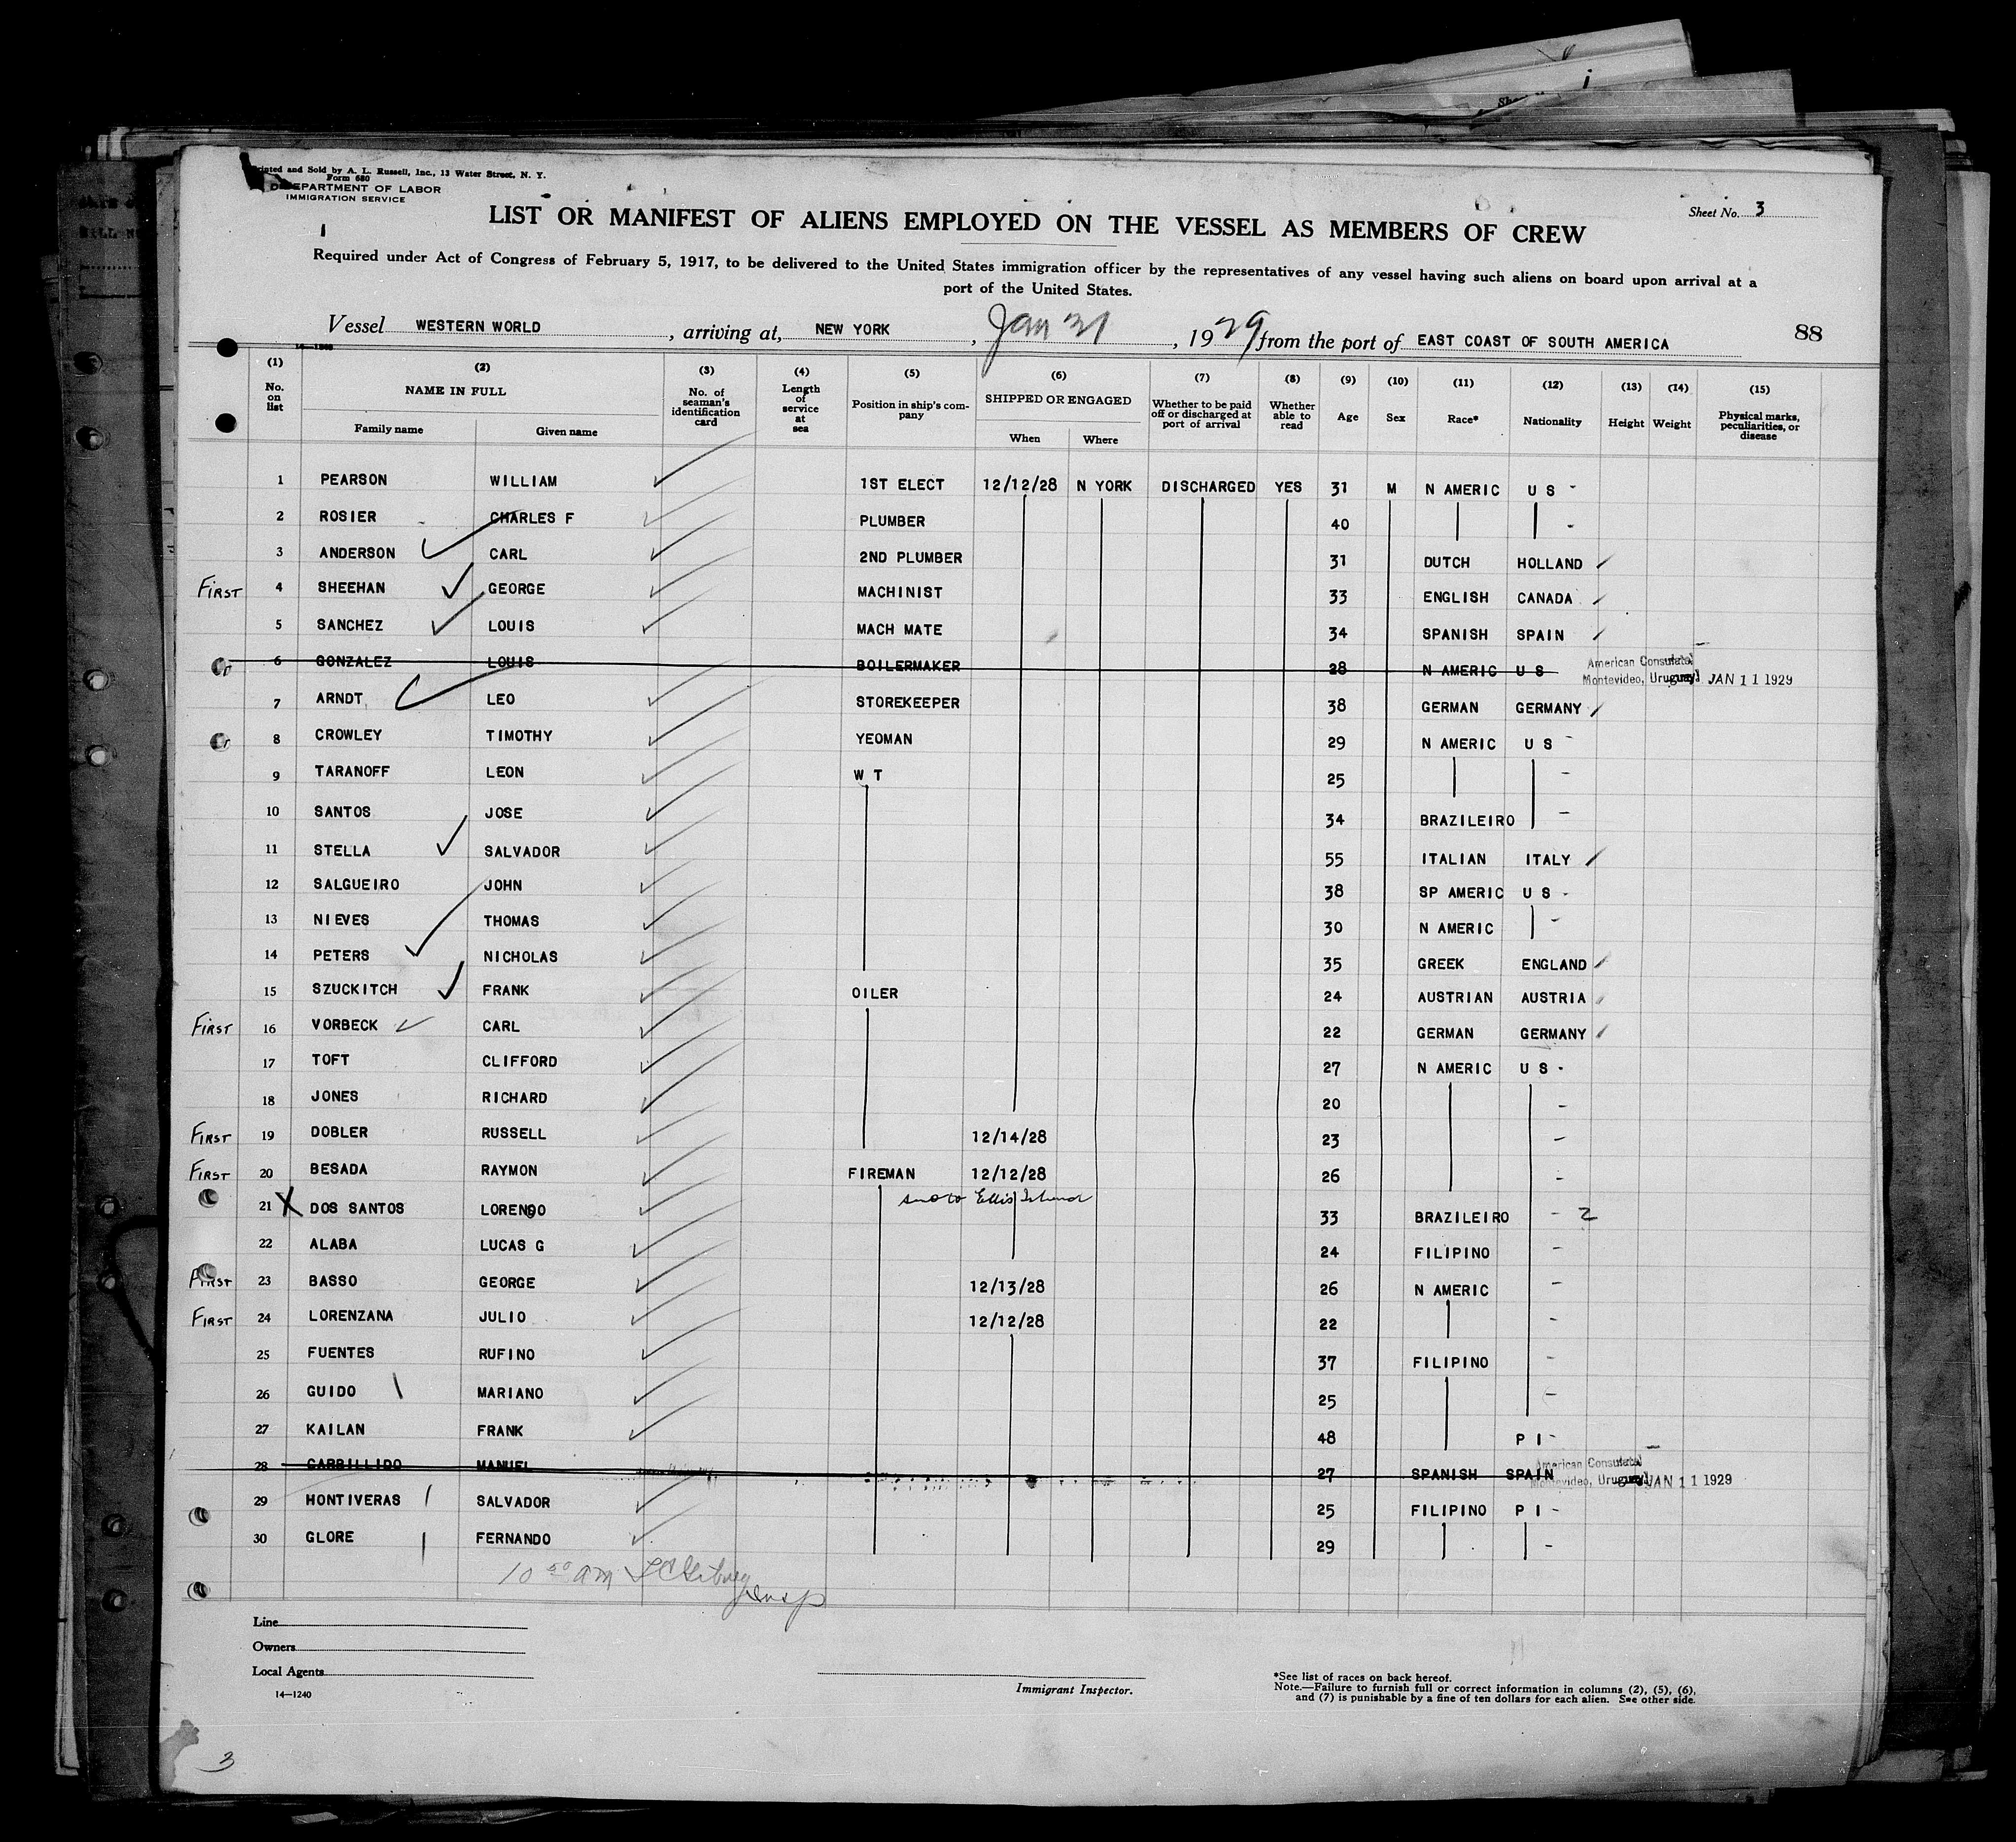 Printed and Sold by A. L. Russell, Inc., 13 Water Street, N. Y.
Form 680
DEPARTMENT OF LABOR
IMMIGRATION SERVICE
Sheet No. 3
LIST OR MANIFEST OF ALIENS EMPLOYED ON THE VESSEL AS MEMBERS OF CREW
Required under Act of Congress of February 5, 1917, to be delivered to the United States immigration officer by the representatives of any vessel having such aliens on board upon arrival at a
port of the United States.
Vessel WESTERN WORLD, arriving at, NEW YORK, Jan 31, 1929 from the port of EAST COAST OF SOUTH AMERICA 88
(1) (2) (3) (4) (5) (6) (7) (8) (9) (10) (11) (12) (13) (14) (15)
No. on list NAME IN FULL Family name Given name No. of seaman's identification card Length of service at sea Position in ship's company SHIPPED OR ENGAGED When Where Whether to be paid off or discharged at port of arrival Whether able to read Age Sex Race* Nationality Height Weight Physical marks, peculiarities, or disease
1 PEARSON WILLIAM 1ST ELECT 12/12/28 N YORK DISCHARGED YES 31 M N AMERIC U S -
2 ROSIER CHARLES F PLUMBER 40 -
3 ANDERSON CARL 2ND PLUMBER 31 DUTCH HOLLAND
FIRST 4 SHEEHAN GEORGE MACHINIST 33 ENGLISH CANADA
5 SANCHEZ LOUIS MACH MATE 34 SPANISH SPAIN
6 GONZALEZ LOUIS BOILERMAKER 28 N AMERIC U S American Consulate Montevideo, Uruguay JAN 11 1929
7 ARNDT LEO STOREKEEPER 38 GERMAN GERMANY
8 CROWLEY TIMOTHY YEOMAN 29 N AMERIC U S -
9 TARANOFF LEON W T 25 -
10 SANTOS JOSE 34 BRAZILEIRO -
11 STELLA SALVADOR 55 ITALIAN ITALY
12 SALGUEIRO JOHN 38 SP AMERIC U S -
13 NIEVES THOMAS 30 N AMERIC -
14 PETERS NICHOLAS 35 GREEK ENGLAND
15 SZUCKITCH FRANK OILER 24 AUSTRIAN AUSTRIA
FIRST 16 VORBECK CARL 22 GERMAN GERMANY
17 TOFT CLIFFORD 27 N AMERIC U S -
18 JONES RICHARD 20 -
FIRST 19 DOBLER RUSSELL 12/14/28 23 -
FIRST 20 BESADA RAYMON FIREMAN 12/12/28 26 -
21 X DOS SANTOS LORENSO Ellis Island 33 BRAZILEIRO - 2
22 ALABA LUCAS G 24 FILIPINO -
FIRST 23 BASSO GEORGE 12/13/28 26 N AMERIC -
FIRST 24 LORENZANA JULIO 12/12/28 22 -
25 FUENTES RUFINO 37 FILIPINO -
26 GUIDO MARIANO 25 -
27 KAILAN FRANK 48 P I -
28 CARBILLIDO MANUEL 27 SPANISH SPAIN American Consulate Montevideo, Uruguay JAN 11 1929
29 HONTIVERAS SALVADOR 25 FILIPINO P I -
30 GLORE FERNANDO 29 -
10 50 am Insp
Line
Owners
Local Agents
14—1240
Immigrant Inspector.
*See list of races on back hereof.
Note.—Failure to furnish full or correct information in columns (2), (5), (6),
and (7) is punishable by a fine of ten dollars for each alien. See other side.
3